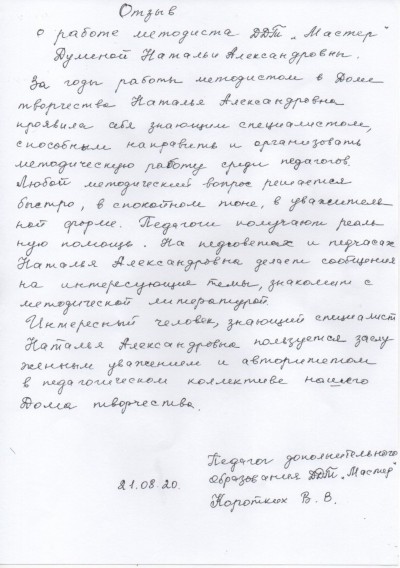 Отзыв
о работе методиста ДДТ „Мастер"
Думеной Натальи Александровны.
За годы работы методистом в Доме
творчества Наталья Александровна
проявила себя знающим специалистом,
способным направить и организовать
методическую работу среди педагогов.
Любой методический вопрос решается
быстро, в спокойном тоне, в уважитель
ной форме. Педагоги получают реаль
ную помощь. На педсоветах и педчасах
Наталья Александровна делает сообщения
на интересующие темы, знакомит с
методической литературой.
Интересный человек, знающий специалист
Наталья Александровна пользуется заслу
женным уважением и авторитетом
в педагогическом коллективе нашего
Дома творчества.
Педагог дополнительного
образования ДДТ „Мастер"
21.08.20.
Коротких В. В.